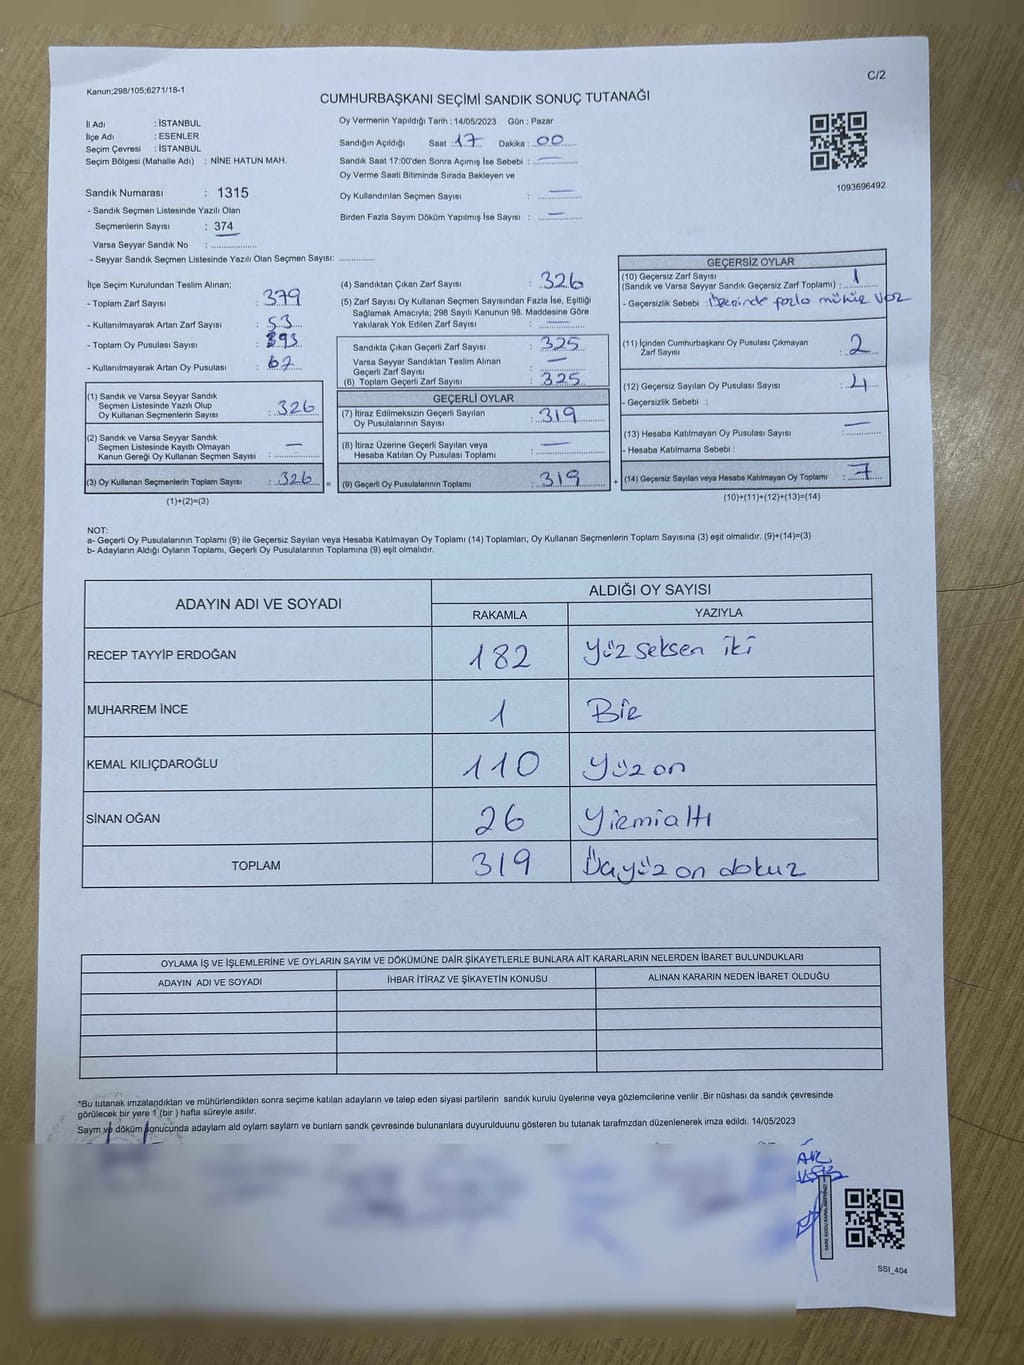 Kanun;298/105;6271/18-1
C/2
CUMHURBAŞKANI SEÇİMİ SANDIK SONUÇ TUTANAĞI
İl Adı : İSTANBUL
İlçe Adı : ESENLER
Seçim Çevresi : İSTANBUL
Seçim Bölgesi (Mahalle Adı) : NİNE HATUN MAH.
Oy Vermenin Yapıldığı Tarih : 14/05/2023 Gün : Pazar
Sandığın Açıldığı Saat : 17 Dakika : 00
Sandık Saat 17:00'den Sonra Açımış İse Sebebi : —
Oy Verme Saati Bitiminde Sırada Bekleyen ve
Oy Kullandırılan Seçmen Sayısı : —
Birden Fazla Sayım Döküm Yapılmış İse Sayısı : —
1093696492
Sandık Numarası : 1315
- Sandık Seçmen Listesinde Yazılı Olan
Seçmenlerin Sayısı : 374
Varsa Seyyar Sandık No :
- Seyyar Sandık Seçmen Listesinde Yazılı Olan Seçmen Sayısı:
İlçe Seçim Kurulundan Teslim Alınan;
- Toplam Zarf Sayısı : 379
- Kullanılmayarak Artan Zarf Sayısı : 53
- Toplam Oy Pusulası Sayısı : 393
- Kullanılmayarak Artan Oy Pusulası : 67
(1) Sandık ve Varsa Seyyar Sandık
Seçmen Listesinde Yazılı Olup
Oy Kullanan Seçmenlerin Sayısı : 326
(2) Sandık ve Varsa Seyyar Sandık
Seçmen Listesinde Kayıtlı Olmayan
Kanun Gereği Oy Kullanan Seçmen Sayısı : —
(3) Oy Kullanan Seçmenlerin Toplam Sayısı : 326
(1)+(2)=(3)
=
(4) Sandıktan Çıkan Zarf Sayısı : 326
(5) Zarf Sayısı Oy Kullanan Seçmen Sayısından Fazla İse, Eşitliği
Sağlamak Amacıyla; 298 Sayılı Kanunun 98. Maddesine Göre
Yakılarak Yok Edilen Zarf Sayısı : —
Sandıkta Çıkan Geçerli Zarf Sayısı : 325
Varsa Seyyar Sandıktan Teslim Alınan
Geçerli Zarf Sayısı : —
(6) Toplam Geçerli Zarf Sayısı : 325
GEÇERLİ OYLAR
(7) İtiraz Edilmeksizin Geçerli Sayılan
Oy Pusulalarının Sayısı : 319
(8) İtiraz Üzerine Geçerli Sayılan veya
Hesaba Katılan Oy Pusulası Toplamı : —
(9) Geçerli Oy Pusulalarının Toplamı : 319
+
GEÇERSİZ OYLAR
(10) Geçersiz Zarf Sayısı
(Sandık ve Varsa Seyyar Sandık Geçersiz Zarf Toplamı) : 1
- Geçersizlik Sebebi : Üzerinde fazla mühür var
(11) İçinden Cumhurbaşkanı Oy Pusulası Çıkmayan
Zarf Sayısı : 2
(12) Geçersiz Sayılan Oy Pusulası Sayısı : 4
- Geçersizlik Sebebi :
(13) Hesaba Katılmayan Oy Pusulası Sayısı : —
- Hesaba Katılmama Sebebi :
(14) Geçersiz Sayılan veya Hesaba Katılmayan Oy Toplamı : 7
(10)+(11)+(12)+(13)=(14)
NOT:
a- Geçerli Oy Pusulalarının Toplamı (9) ile Geçersiz Sayılan veya Hesaba Katılmayan Oy Toplamı (14) Toplamları, Oy Kullanan Seçmenlerin Toplam Sayısına (3) eşit olmalıdır. (9)+(14)=(3)
b- Adayların Aldığı Oyların Toplamı, Geçerli Oy Pusulalarının Toplamına (9) eşit olmalıdır.
ADAYIN ADI VE SOYADI
ALDIĞI OY SAYISI
RAKAMLA YAZIYLA
RECEP TAYYİP ERDOĞAN 182 Yüz seksen iki
MUHARREM İNCE 1 Bir
KEMAL KILIÇDAROĞLU 110 Yüz on
SİNAN OĞAN 26 Yirmialtı
TOPLAM 319 Üçyüz on dokuz
OYLAMA İŞ VE İŞLEMLERİNE VE OYLARIN SAYIM VE DÖKÜMÜNE DAİR ŞİKAYETLERLE BUNLARA AİT KARARLARIN NELERDEN İBARET BULUNDUKLARI
ADAYIN ADI VE SOYADI İHBAR İTİRAZ VE ŞİKAYETİN KONUSU ALINAN KARARIN NEDEN İBARET OLDUĞU
*Bu tutanak imzalandıktan ve mühürlendikten sonra seçime katılan adayların ve talep eden siyasi partilerin sandık kurulu üyelerine veya gözlemcilerine verilir .Bir nüshası da sandık çevresinde
görülecek bir yere 1 (bir ) hafta süreyle asılır.
Sayım ve döküm sonucunda adayların ald oyların sayların ve bunların sandk çevresinde bulunanlara duyurulduunu gösteren bu tutanak tarafmzdan düzenlenerek imza edildi. 14/05/2023
SSI_404